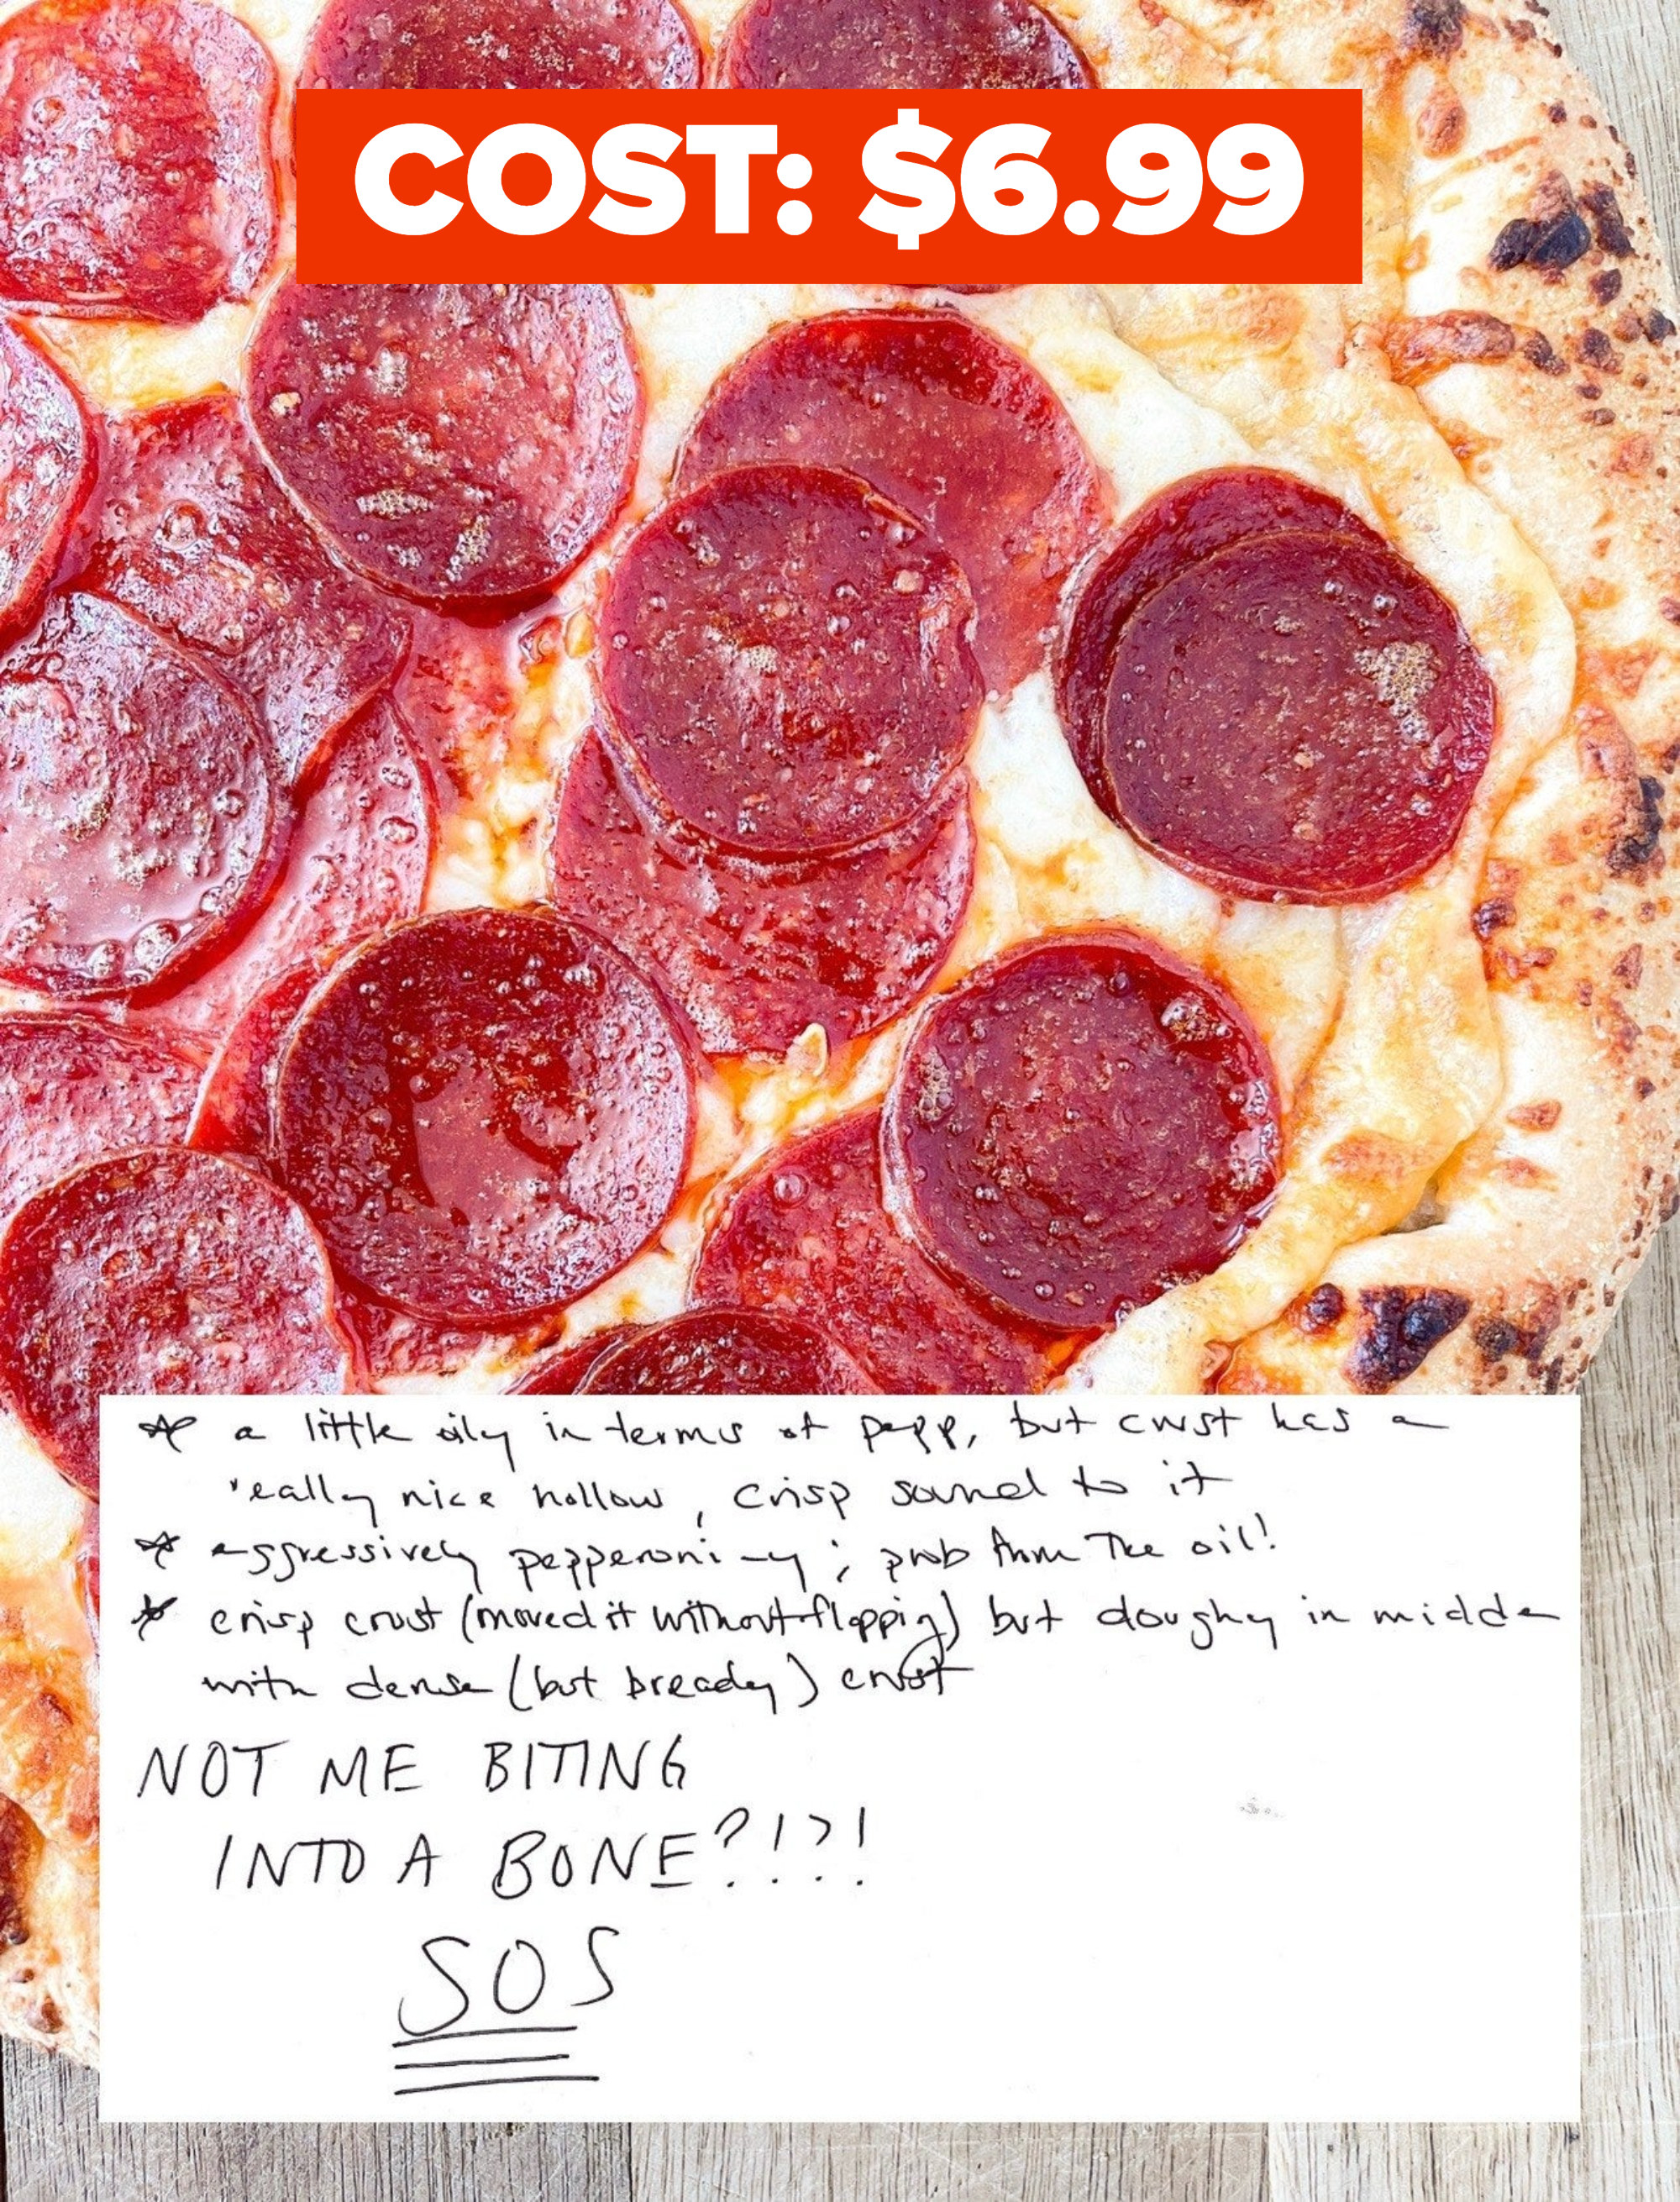 COST: $6.99
* a little oily in terms of pepp, but crust has a
really nice hollow, crisp sound to it
* aggressively pepperoni-y; prob from the oil!
* crisp crust (moved it without flopping) but doughy in middle
with dense (but bready) crust
NOT ME BITING
INTO A BONE?!?!
SOS